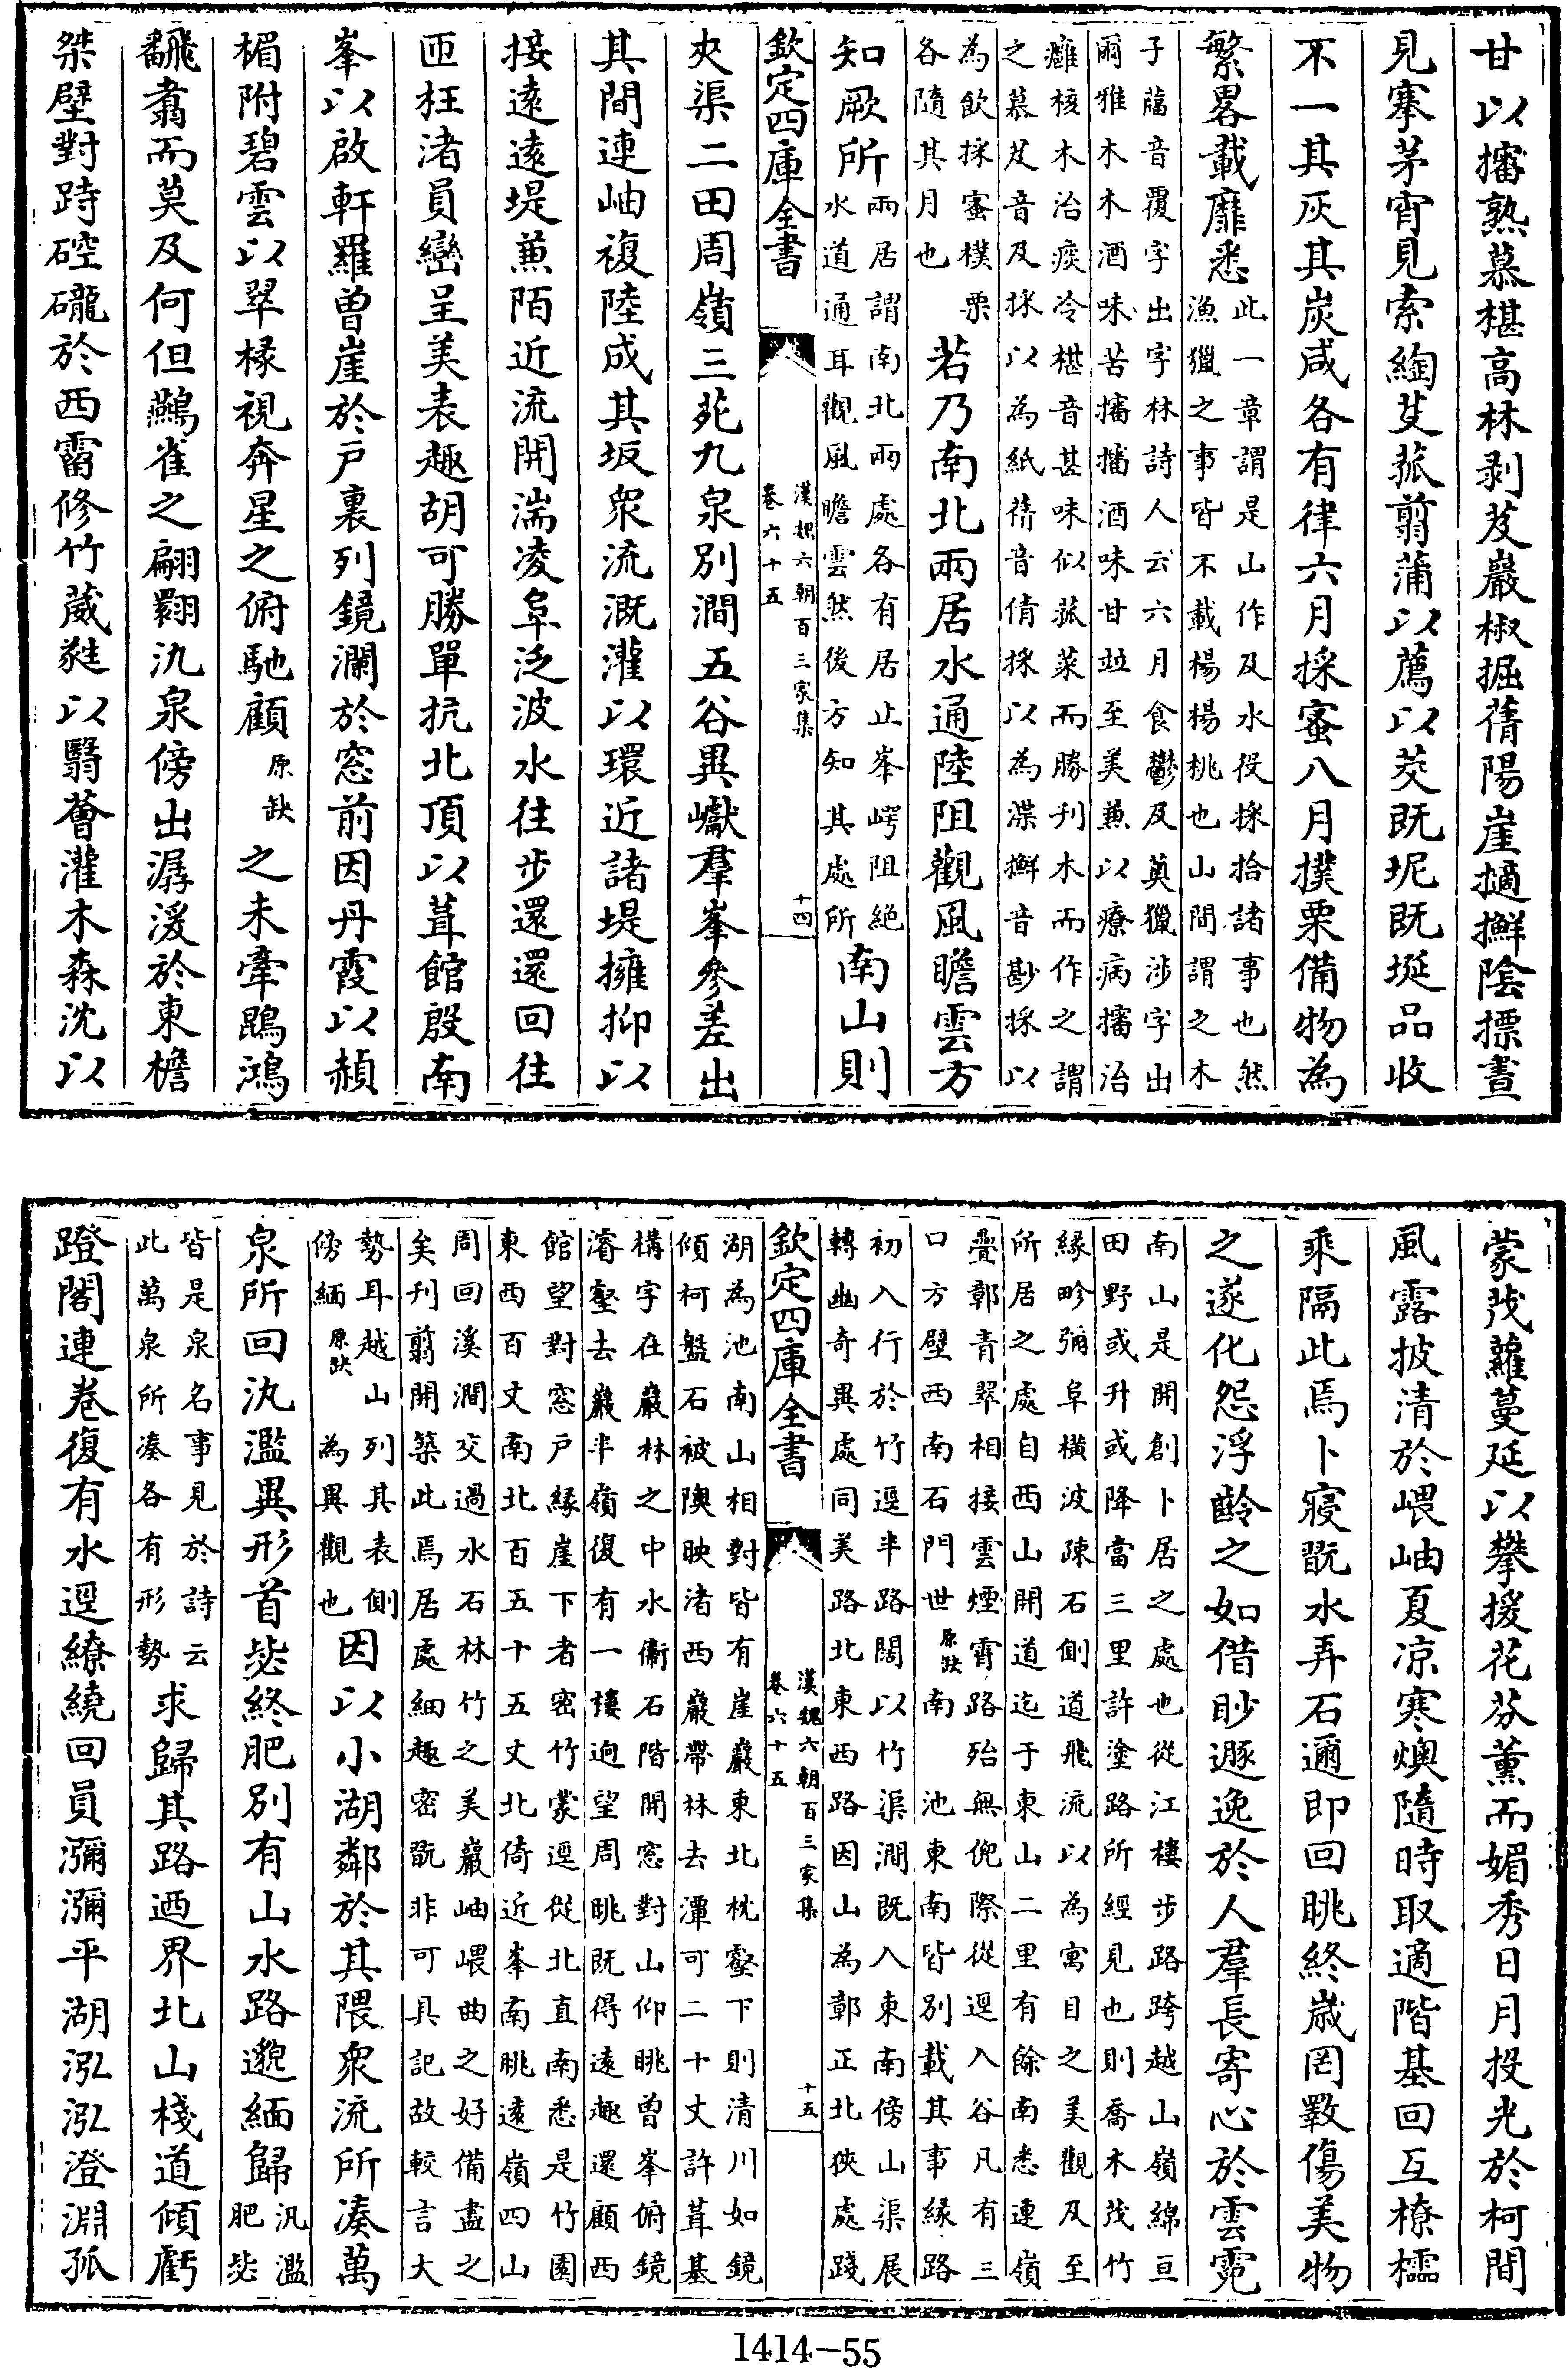 甘以㩉熟慕椹高林剥芨巖椒掘蒨陽崖擿㩻陰摽晝
見搴茅宵見索綯芟菰翦蒲以薦以茭既坭既埏品收
不一其灰其炭咸各有律六月採蜜八月撲栗備物為
繁畧載靡悉此一章謂是山作及水役採拾諸事也然
漁獵之事皆不載楊楊桃也山間謂之木
子䕌音覆字出字林詩人云六月食鬱及薁獵涉字出
爾雅木木酒味苦㩉㩉酒味甘竝至美兼以療病㩉治
癰核木治痰冷椹音甚味似菰菜而勝刊木而作之謂
之慕芨音及採以為紙蒨音倩採以為渫㩻音尠採以
為飲採蜜樸栗
各隨其月也
若乃南北兩居水通陸阻觀風瞻雲方
知厥所
兩居謂南北兩處各有居止峯崿阻絶
水道通耳觀風瞻雲然後方知其處所
南山則
欽定四庫全書
漢魏六朝百三家集
卷六十五
十四
夾渠二田周嶺三苑九泉別澗五谷異巘羣峯參差出
其間連岫複陸成其坂衆流溉灌以環近諸堤擁抑以
接遠遠堤兼陌近流開湍凌阜泛波水往步還還回往
匝枉渚員巒呈美表趣胡可勝單抗北頂以葺館殷南
峯以啟軒羅曽崖於戸裏列鏡瀾於窓前因丹霞以赬
楣附碧雲以翠椽視奔星之俯馳顧
原缺
之未牽鵾鴻
翻翥而莫及何但鷰雀之翩翾氿泉傍出潺湲於東檐
桀壁對跱硿礲於西霤修竹葳蕤以翳薈灌木森沈以
蒙茂蘿蔓延以攀援花芬薰而媚秀日月投光於柯間
風露披清於嵔岫夏凉寒燠隨時取適階基回互橑櫺
乘隔此焉卜寢翫水弄石邇即回眺終嵗罔斁傷美物
之遂化怨浮齡之如借眇遯逸於人羣長寄心於雲霓
南山是開創卜居之處也從江樓步路跨越山嶺綿亘
田野或升或降當三里許塗路所經見也則喬木茂竹
緣畛彌阜横波疎石側道飛流以為寓目之美觀及至
所居之處自西山開道迄于東山二里有餘南悉連嶺
疊鄣青翠相接雲煙霄路殆無倪際從逕入谷凡有三
口方壁西南石門世
原缺
南
池東南皆別載其事緣路
初入行於竹逕半路闊以竹渠澗既入東南傍山渠展
轉幽奇異處同美路北東西路因山為鄣正北狹處踐
欽定四庫全書
漢魏六朝百三家集
卷六十五
十五
湖為池南山相對皆有崖巖東北枕壑下則清川如鏡
傾柯盤石被隩映渚西巖帶林去潭可二十丈許葺基
構字在巖林之中水衛石階開窓對山仰眺曽峯俯鏡
濬壑去巖半嶺復有一樓迥望周眺既得遠趣還顧西
館望對窓戸緣崖下者密竹蒙逕從北直南悉是竹園
東西百丈南北百五十五丈北倚近峯南眺遠嶺四山
周回溪澗交過水石林竹之美巖岫嵔曲之好備盡之
矣刊翦開築此焉居處細趣密翫非可具記故較言大
勢耳越山列其表側
傍緬
原缺
為異觀也
因以小湖鄰於其隈衆流所湊萬
泉所回氿濫異形首毖終肥別有山水路邈緬歸
氿濫
肥毖
皆是泉名事見於詩云
此萬泉所凑各有形勢
求歸其路迺界北山棧道傾虧
蹬閣連卷復有水逕繚繞回員瀰瀰平湖泓泓澄淵孤
1414—55